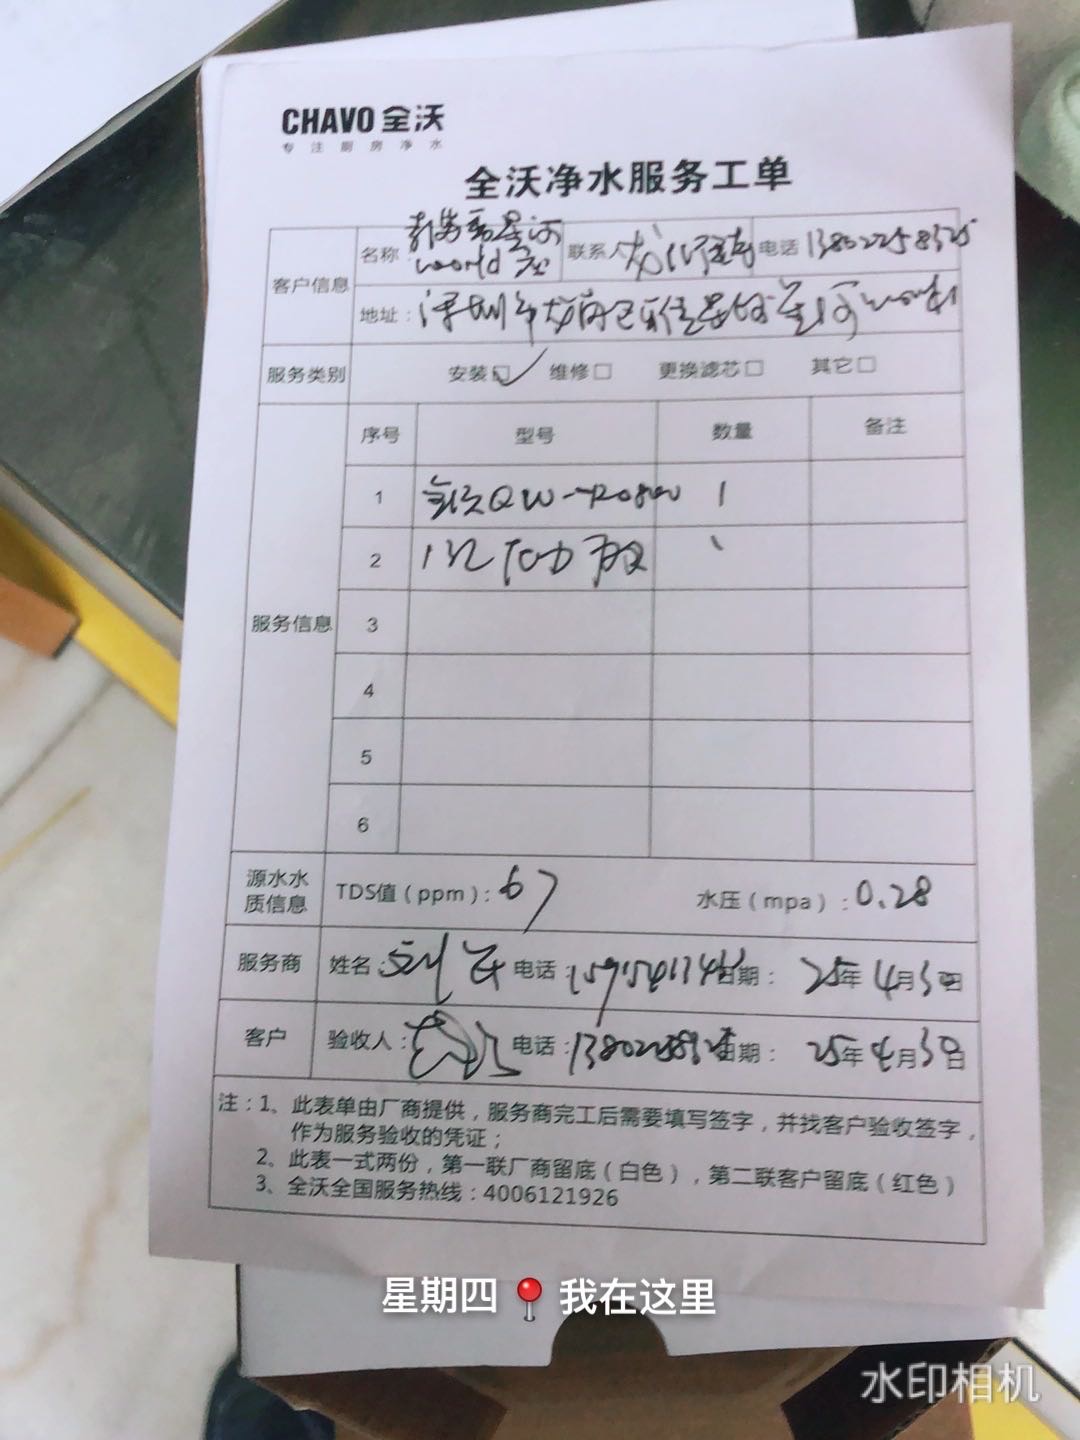 CHAVO 全沃
专注厨房净水
全沃净水服务工单
客户信息 名称 星河 world 店 联系人 电话 13802258325
地址: 深圳市龙岗区 星河world
服务类别 安装☑ 维修□ 更换滤芯□ 其它□
服务信息 序号 型号 数量 备注
1 全沃QW-R0800 1
2
3
4
5
6
源水水质信息 TDS值(ppm): 67 水压(mpa): 0.28
服务商 姓名: 电话: 日期: 25年4月30日
客户 验收人: 电话: 13802258325 日期: 25年4月30日
注:1、此表单由厂商提供,服务商完工后需要填写签字,并找客户验收签字,
作为服务验收的凭证;
2、此表一式两份,第一联厂商留底(白色),第二联客户留底(红色)
3、全沃全国服务热线:4006121926
星期四📍我在这里
水印相机